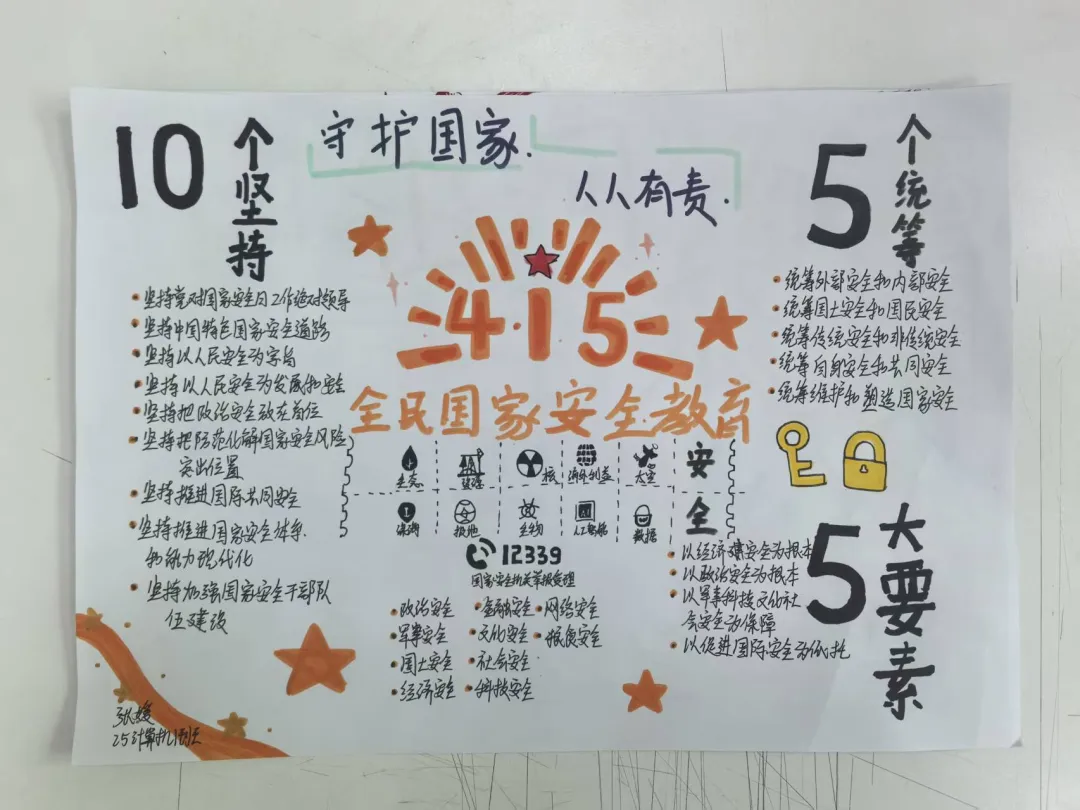 守护国家.
人人有责.
10
个坚持
坚持党对国家安全日工作绝对领导
坚持中国特色国家安全道路
坚持以人民安全为宗旨
坚持以人民安全为发展和安全
坚持把政治安全放在首位
坚持把防范化解国家安全风险
突出位置
坚持推进国际共同安全
坚持推进国家安全体系
和能力现代化
坚持加强国家安全干部队
伍建设
4·15
全民国家安全教育
生态
资源
核
海外利益
太空
安全
深海
极地
生物
人工智能
数据
12339
国家安全机关举报受理
政治安全
金融安全
网络安全
军事安全
文化安全
粮食安全
国土安全
社会安全
经济安全
科技安全
5
个统筹
统筹外部安全和内部安全
统筹国土安全和国民安全
统筹传统安全和非传统安全
统筹自身安全和共同安全
统筹维护和塑造国家安全
5
大要素
以经济建安全为根本
以政治安全为根本
以军事科技文化社
会安全为保障
以促进国际安全为依托
张媛
25计算机1班